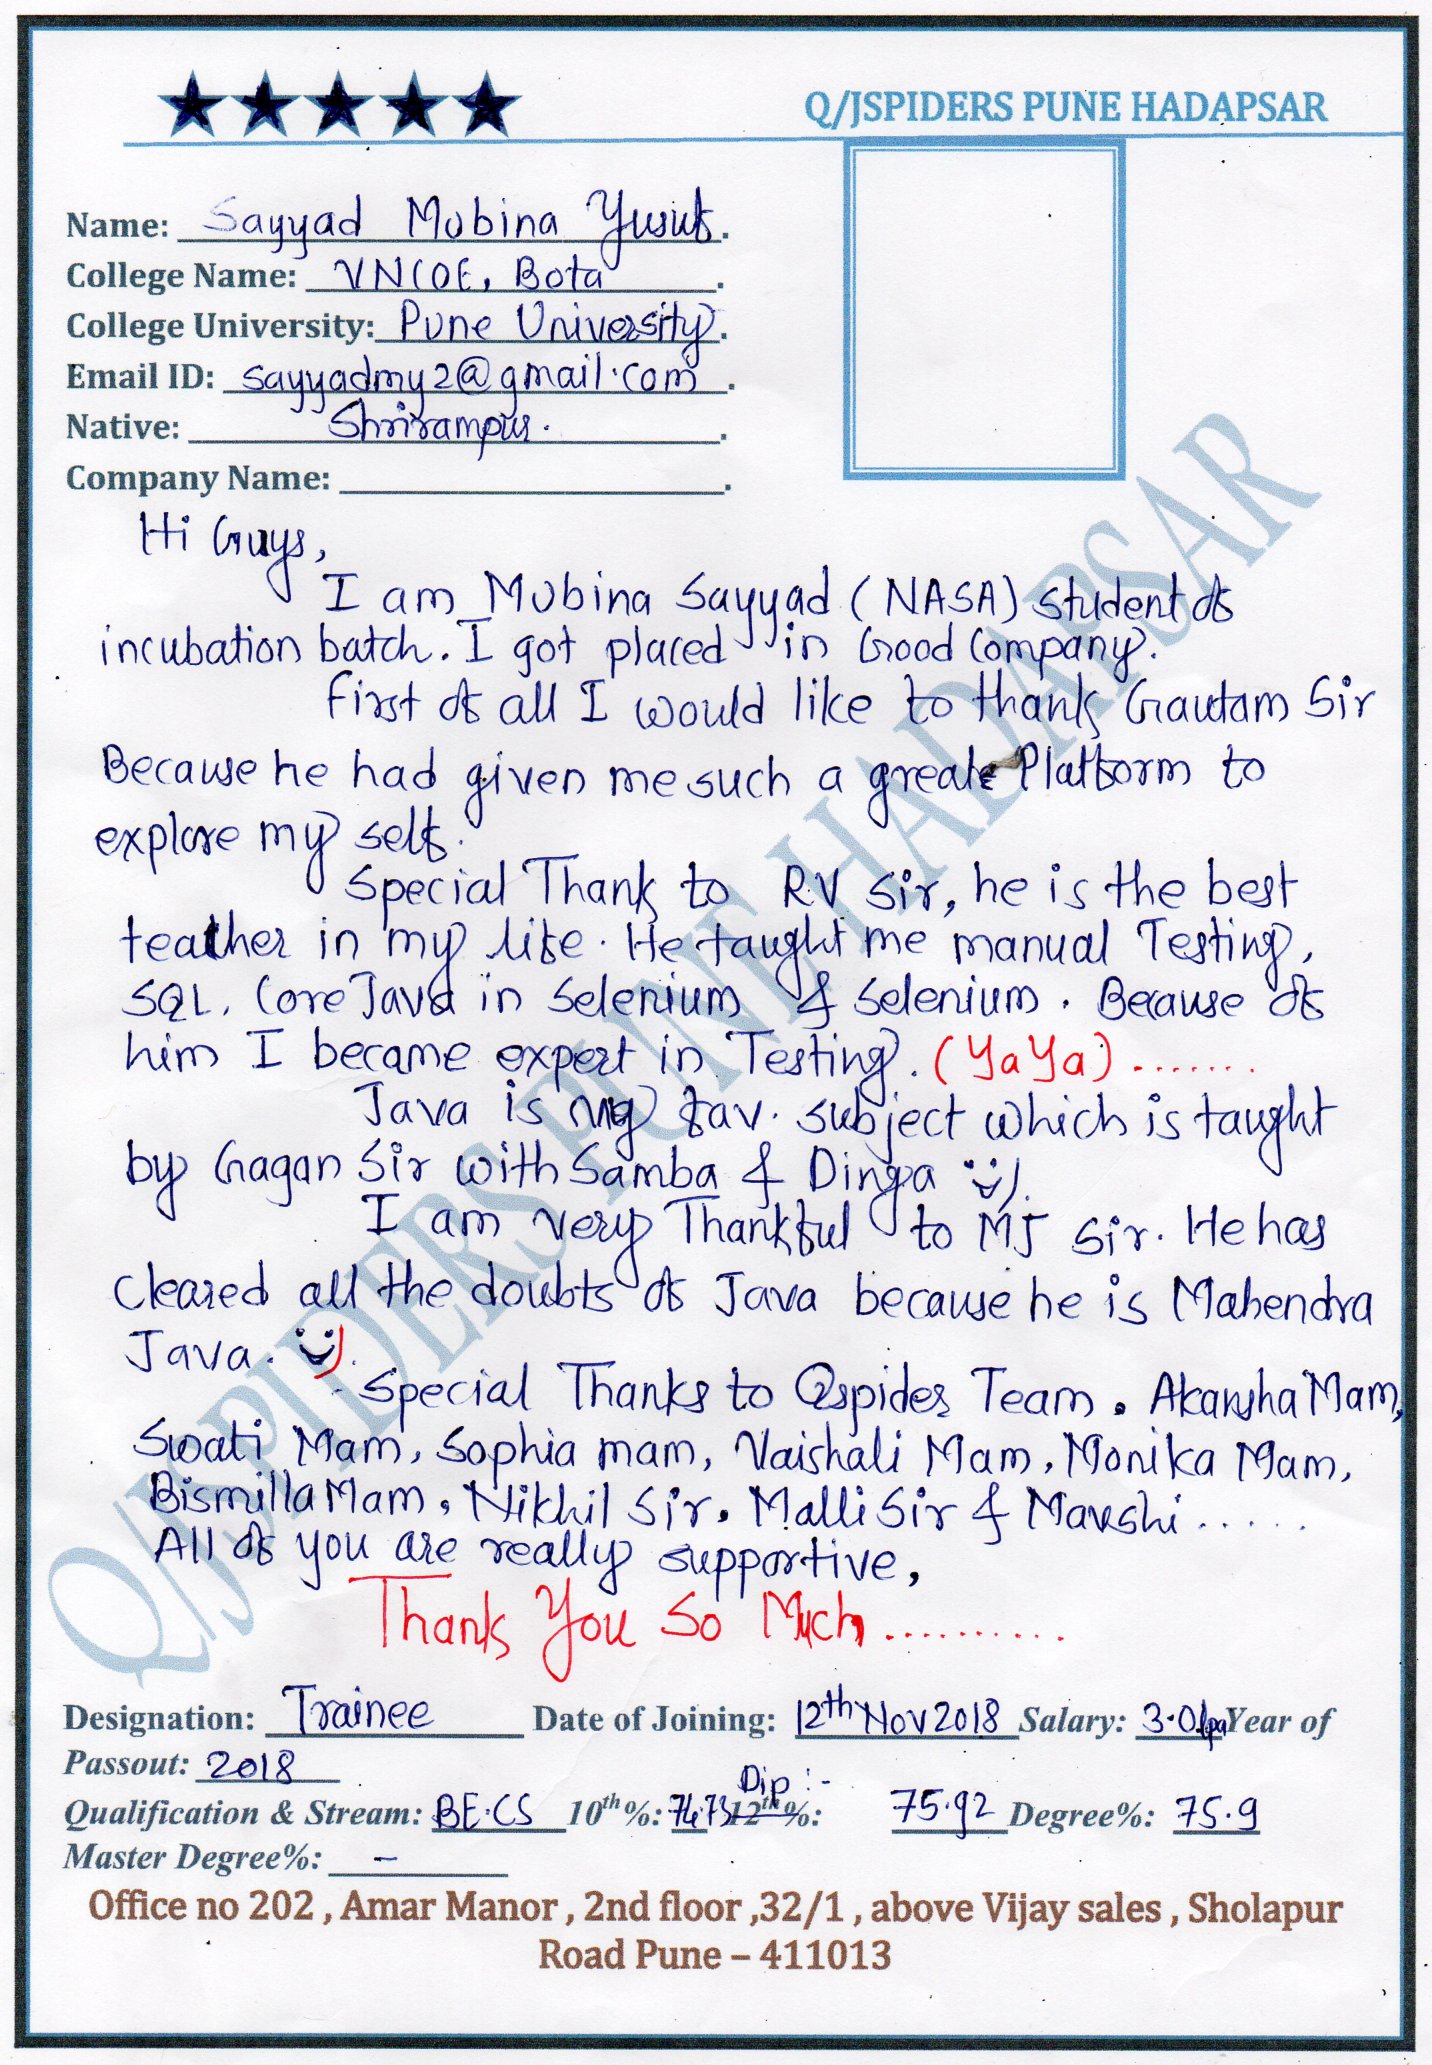 Q/JSPIDERS PUNE HADAPSAR
Name: Sayyad Mubina Yusuf.
College Name: VNCOE, Bota.
College University: Pune University.
Email ID: sayyadmy2@gmail.com.
Native: Shrirampur.
Company Name: .
Hi Guys,
I am Mubina Sayyad (NASA) student of
incubation batch. I got placed in Good Company.
first of all I would like to thank Gautam Sir
Because he had given me such a great Platform to
explore my self.
Special Thank to RV sir, he is the best
teacher in my life. He taught me manual Testing,
SQL, Core Java in selenium & selenium. Because of
him I became expert in Testing. (YaYa).......
Java is my fav. subject which is taught
by Gagan Sir with Samba & Dinga
I am very Thankful to MJ sir. He has
Cleared all the doubts of Java because he is Mahendra
Java.
Special Thanks to Qspider Team. Akansha Mam,
Swati Mam, Sophia mam, Vaishali Mam, Monika Mam,
Bismilla Mam, Nikhil Sir, Malli Sir & Maushi.....
All of you are really supportive,
Thank You So Much..........
Designation: Trainee Date of Joining: 12th Nov 2018 Salary: 3.0lpa Year of
Passout: 2018
Dip :-
Qualification & Stream: BE.CS 10th%: 74.73 12th%: 75.92 Degree%: 75.9
Master Degree%: -
Office no 202 , Amar Manor , 2nd floor ,32/1 , above Vijay sales , Sholapur
Road Pune – 411013
Q/JSPIDERS PUNE HADAPSAR